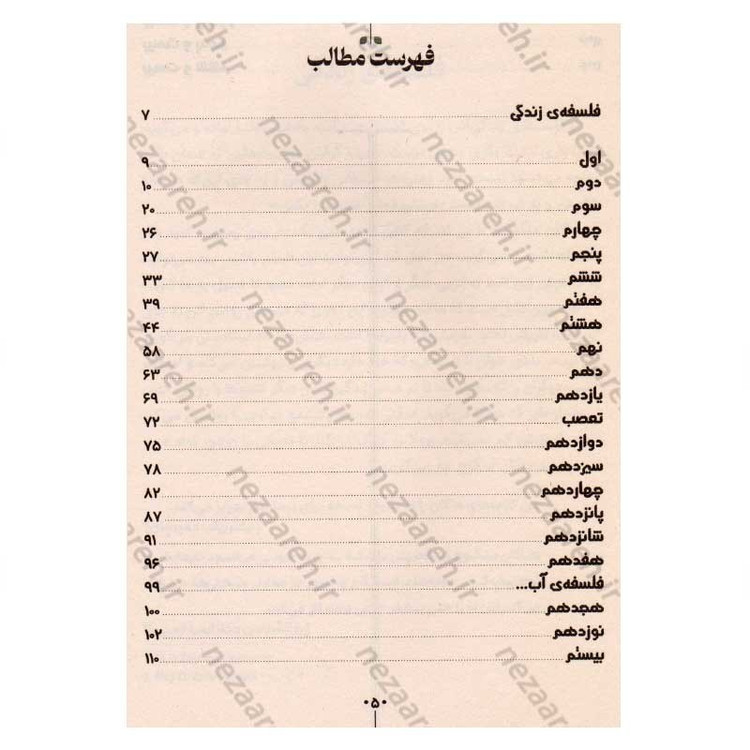 فهرست مطالب
فلسفه‌ی زندگی ۷
اول ۹
دوم ۱۰
سوم ۲۰
چهارم ۲۶
پنجم ۲۷
ششم ۳۳
هفتم ۳۹
هشتم ۴۴
نهم ۵۸
دهم ۶۳
یازدهم ۶۹
تعصب ۷۲
دوازدهم ۷۵
سیزدهم ۷۸
چهاردهم ۸۲
پانزدهم ۸۷
شانزدهم ۹۱
هفدهم ۹۶
فلسفه‌ی آب... ۹۹
هجدهم ۱۰۰
نوزدهم ۱۰۲
بیستم ۱۱۰
۰۵۰
nezaareh.ir